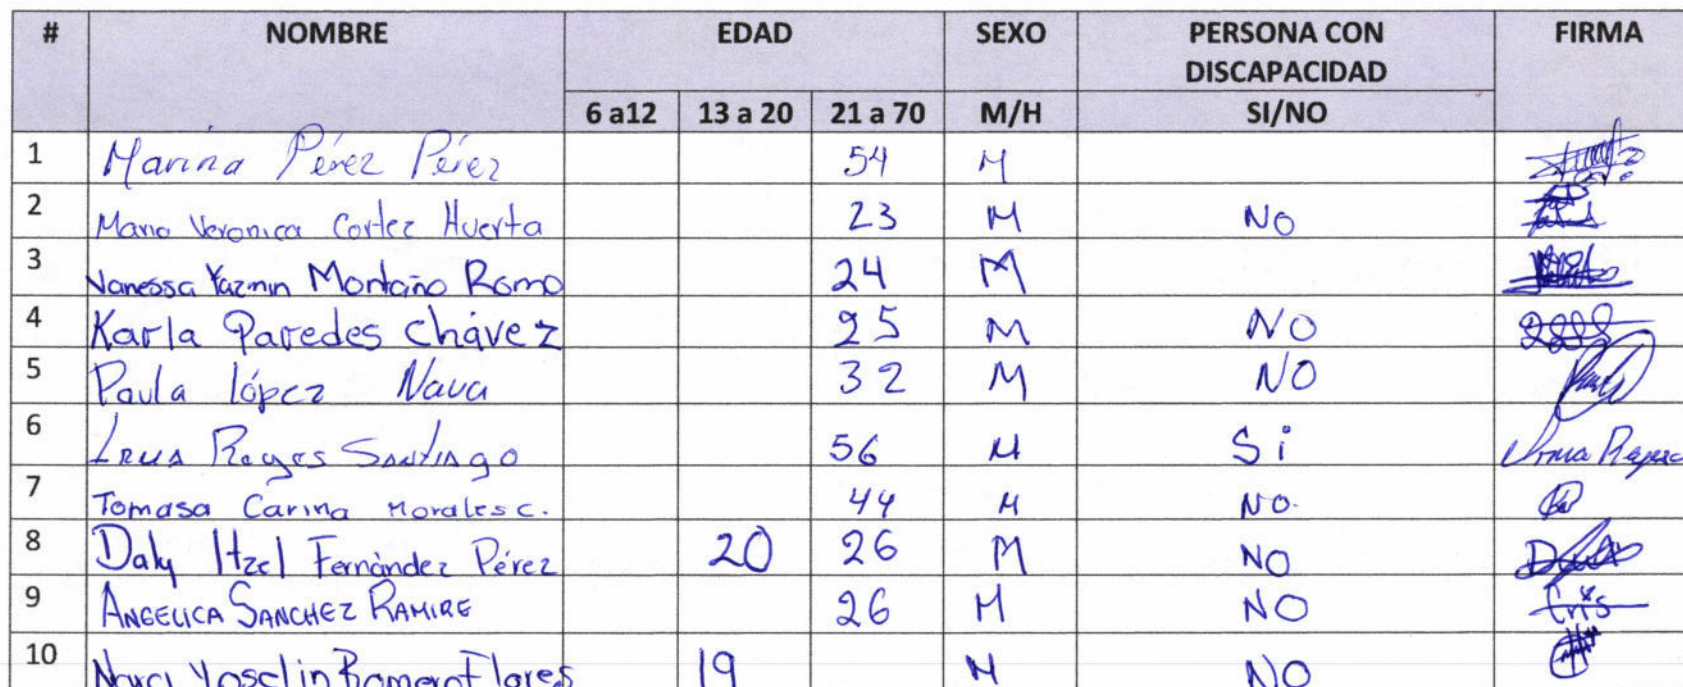 # NOMBRE EDAD SEXO PERSONA CON DISCAPACIDAD FIRMA
6 a12 13 a 20 21 a 70 M/H SI/NO
1 Marina Pérez Pérez 54 M
2 Maria Veronica Cortez Huerta 23 M NO
3 Vanessa Yazmin Montaño Romo 24 M
4 Karla Paredes Chávez 25 M NO
5 Paula López Nava 32 M NO
6 Irma Reyes Santiago 56 M Si Irma Reyes
7 Tomasa Carina Morales c. 44 M NO.
8 Daly Itzel Fernández Pérez 20 26 M NO
9 ANGELICA SANCHEZ RAMIRE 26 M NO
10 Yoselin Romero Flores 19 M NO